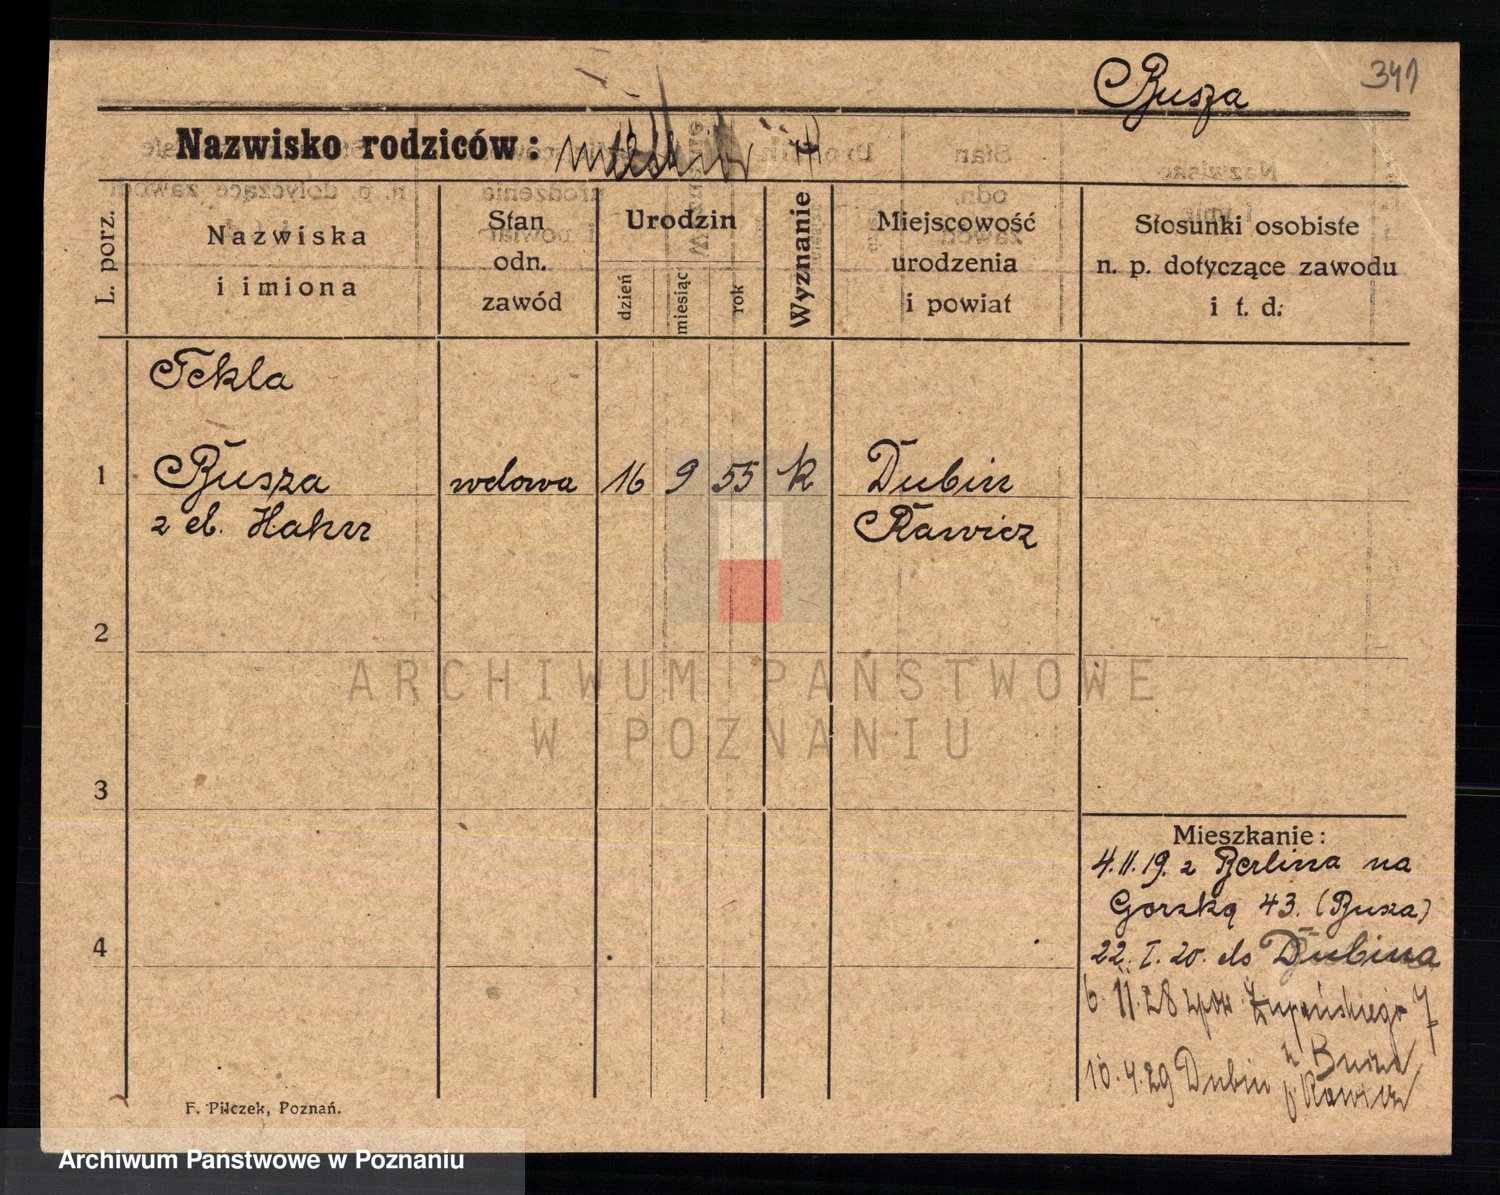 Busza
341
Nazwisko rodziców:
L. porz.
Nazwiska
i imiona
Stan
odn.
zawód
Urodzin
dzień
miesiąc
rok
Wyznanie
Miejscowość
urodzenia
i powiat
Stosunki osobiste
n. p. dotyczące zawodu
i t. d.
Tekla
1
Busza
wdowa
16
9
55
k
Dubin
z d. Hahn
Rawicz
2
3
4
Mieszkanie:
4.11.19. z Berlina na
Gorską 43. (Busza)
22. I. 20. do Dubina
6. II. 28 zpow. Żupańskiego 7
u Busza
10.4.29 Dubin p. Rawicz
F. Pilczek, Poznań.
ARCHIWUM PAŃSTWOWE
W POZNANIU
Archiwum Państwowe w Poznaniu